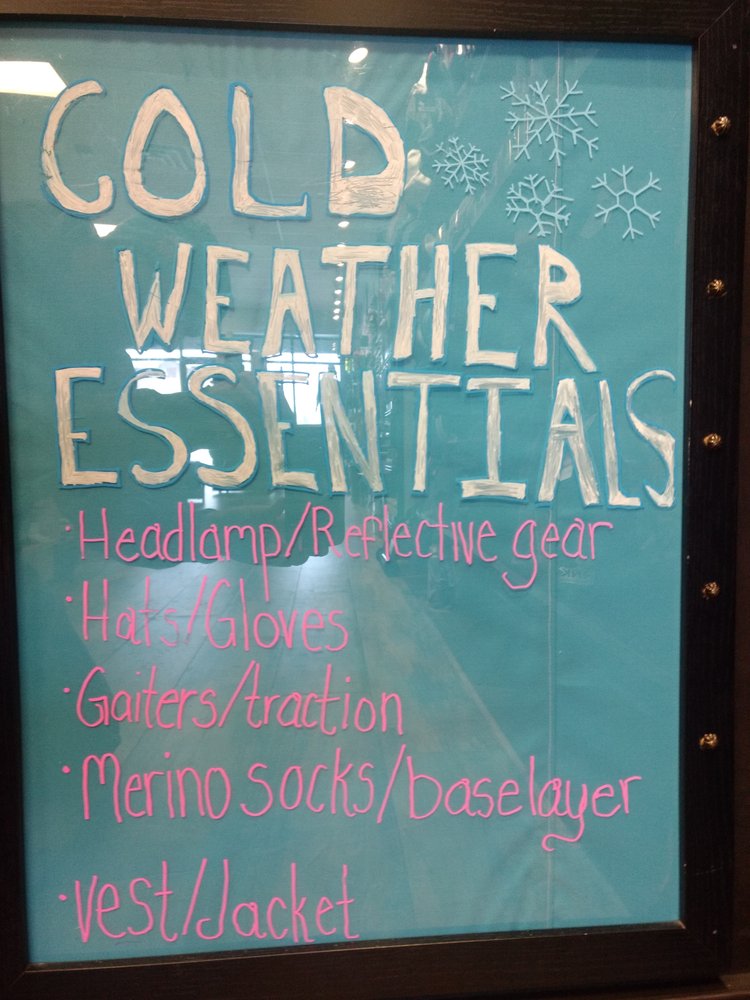 COLD
WEATHER
ESSENTIALS
·Headlamp/Reflective gear
·Hats/Gloves
·Gaiters/traction
·Merino socks/baselayer
·Vest/Jacket